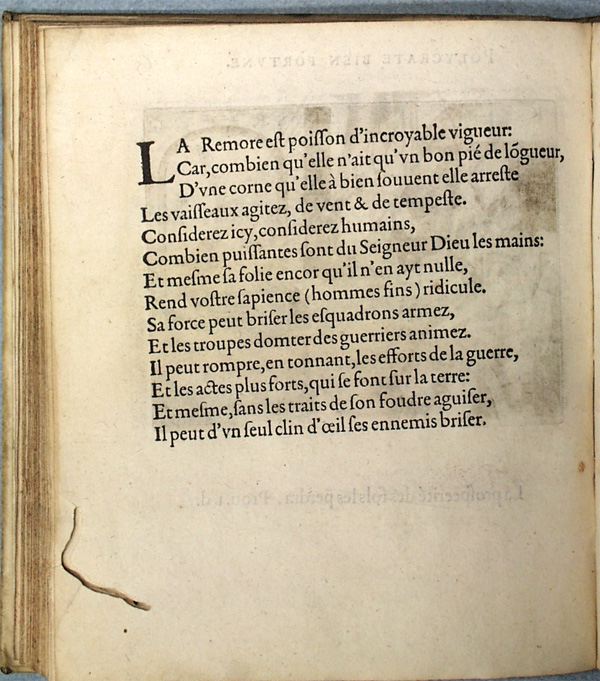 LA Remore eſt poiſſon d'incroyable vigueur:
Car, combien qu'elle n'ait qu'vn bon pié de lõgueur,
D'vne corne qu'elle à bien ſouuent elle arreſte
Les vaiſſeaux agitez, de vent & de tempeſte.
Conſiderez icy, conſiderez humains,
Combien puiſſantes ſont du Seigneur Dieu les mains:
Et meſme ſa folie encor qu'il n'en ayt nulle,
Rend voſtre ſapience (hommes fins) ridicule.
Sa force peut briſer les eſquadrons armez,
Et les troupes domter des guerriers animez.
Il peut rompre, en tonnant, les efforts de la guerre,
Et les actes plus forts, qui ſe font ſur la terre:
Et meſme, ſans les traits de ſon foudre aguiſer,
Il peut d'vn ſeul clin d'œil ſes ennemis briſer.